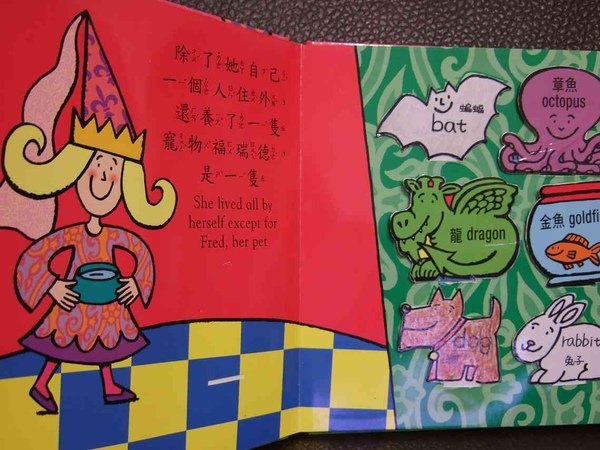 除了她自己
一個人住外，
還養了一隻
寵物福瑞德，
是一隻
She lived all by
herself except for
Fred, her pet
蝙蝠
bat
章魚
octopus
龍 dragon
金魚 goldfi
dog
rabbit
兔子